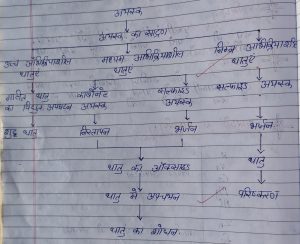 अयस्क
अयस्क का सांद्रण
उच्च अभिक्रियाशील मध्यम अभिक्रियाशील निम्न अभिक्रियाशील
धातुएँ धातुएँ धातुएँ
गलित धातु कार्बोनेट सल्फाइड सल्फाइड अयस्क
का विद्युत अपघटन अयस्क अयस्क
शुद्ध धातु निस्तापन भर्जन भर्जन
धातु का ऑक्साइड धातु
धातु में अपचयन परिष्करण
धातु का शोधन